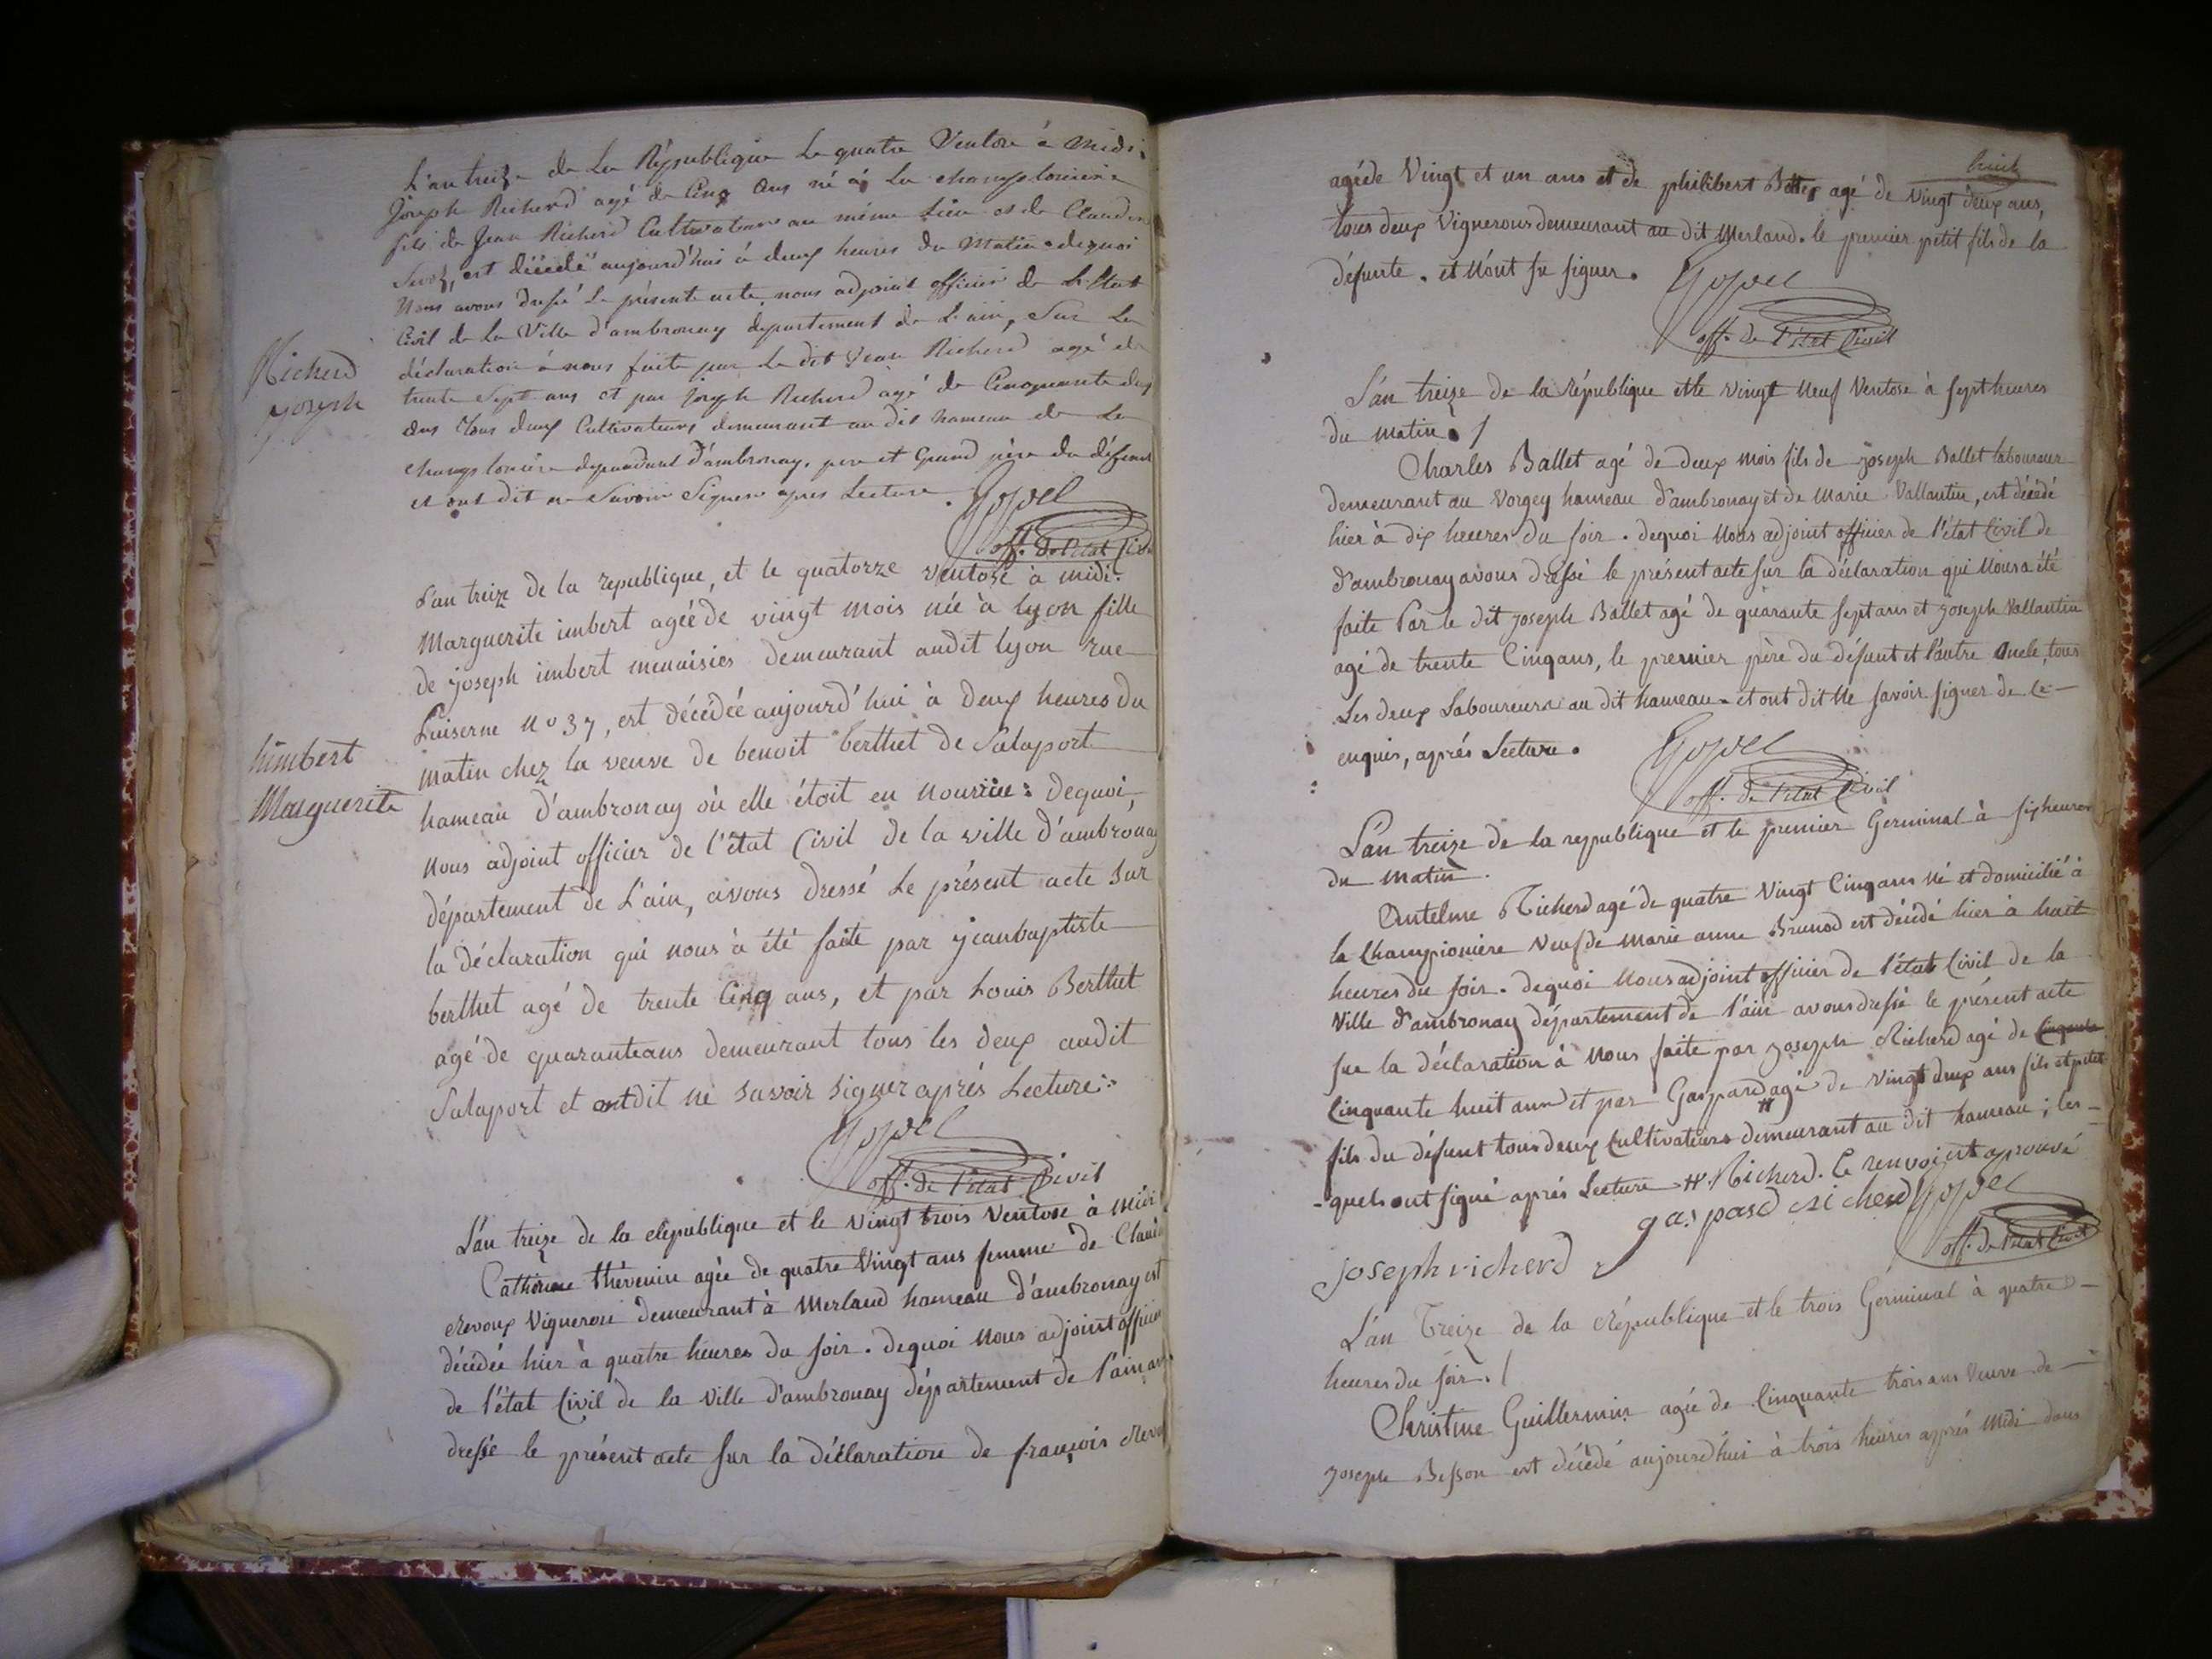 L'an treize de La République Le quatre Ventose à midi.
Joseph Richerd agé de Cinq ans né à La championiere
fils de Jean Richerd Cultivateur au même Lieu et de Claudine
est décédé aujourd'hui à deux heures du Matin. dequoi
Nous avons dressé Le présent acte, nous adjoint officier de L'Etat
Civil de La Ville d'ambronay departement de L'ain, Sur La
déclaration à nous faite par Le dit Jean Richerd agé de
trente Sept ans et par joseph Richerd agé de Cinquante
ans Tous deux Cultivateurs demeurant au dit hameau de La
dependant d'ambronay, pere et Grand père du défunt
et ont dit ne Savoir Signer apres Lecture.
Richerd
joseph
Goyvel
off. de l'état Civil
L'an treize de la republique, et le quatorze ventose à midi.
Marguerite imbert agée de vingt mois née à lyon fille
de joseph imbert menuisier demeurant audit lyon rue
Luiserne n° 37, est décédée aujourd'hui à deux heures du
matin chez la veuve de benoit berthet de Salaport
hameau d'ambronay où elle étoit en nourrice: dequoi,
nous adjoint officier de l'état Civil de la ville d'ambronay
département de L'ain, avons dressé Le présent acte sur
la déclaration qui nous à été faite par jeanbaptiste
berthet agé de trente Cinq ans, et par Louis Berthet
agé de quaranteans demeurant tous les deux audit
Salaport et ontdit ne savoir signer aprés Lecture.
himbert
Marguerite
Goyvel
off. de l'état Civil
L'an treize de la république et le vingt trois Ventose à Midi
Catherine thévenin agée de quatre Vingt ans femme de Claude
Revoux Vigneron demeurant à Merland hameau d'ambronay est
décédée hier à quatre heures du soir. dequoi Nous adjoint officier
de l'état Civil de la Ville d'ambronay département de l'ain
dressé le présent acte sur la déclaration de françois
huit
agéde Vingt et un ans et de philibert agé de Vingt deux ans,
tous deux Vigneronsdemeurant au dit Merland. le premier petit fils de la
défunte. et N'ont su signer.
Goyvel
off. de l'état Civil
L'an treize de la République et le vingt Neuf Ventose à sept heures
du matin. /
Charles Ballet agé de deux mois fils de joseph Ballet laboureur
demeurant au Vorgey hameau d'ambronay et de Marie Vallantin, est décédé
hier à dix heures du soir. dequoi Nous adjoint officier de l'état Civil de
d'ambronay avons dressé le présent acte sur la déclaration qui Nous a été
faite Par le dit joseph Ballet agé de quarante septans et joseph Vallantin
agé de trente Cinqans, le premier père du défunt et l'autre oncle, tous
Les deux Laboureurs au dit hameau. et ont dit Ne savoir signer de ce
enquis, aprés Lecture.
Goyvel
off. de l'état Civil
L'an treize de la republique et le premier Germinal à sixheures
du matin.
Antelme Richerd agé de quatre Vingt Cinqans né et domicilié à
la Championière Veuf de Marie anne Brunod est décédé hier à huit
heures du soir. dequoi Nous adjoint officier de l'état Civil de la
Ville d'ambronay département de l'ain avons dressé le présent acte
sur la déclaration à Nous faite par joseph Richerd agé de Cinquante
Cinquante huit ans et par Gaspard # agé de Vingt deux ans fils et petit
fils du défunt tous deux Cultivateurs demeurant au dit hameau; les-
-quels ont signé aprés Lecture # Richerd. Ce renvoi est aprouvé
gaspard richerd Goyvel
off. de l'état Civil
joseph richerd
L'an Treize de la République et le trois Germinal à quatre
heures du soir. /
Christine Guillermin agée de Cinquante trois ans Veuve de
joseph Besson est décédé aujourd'hui à trois heures aprés Midi dans